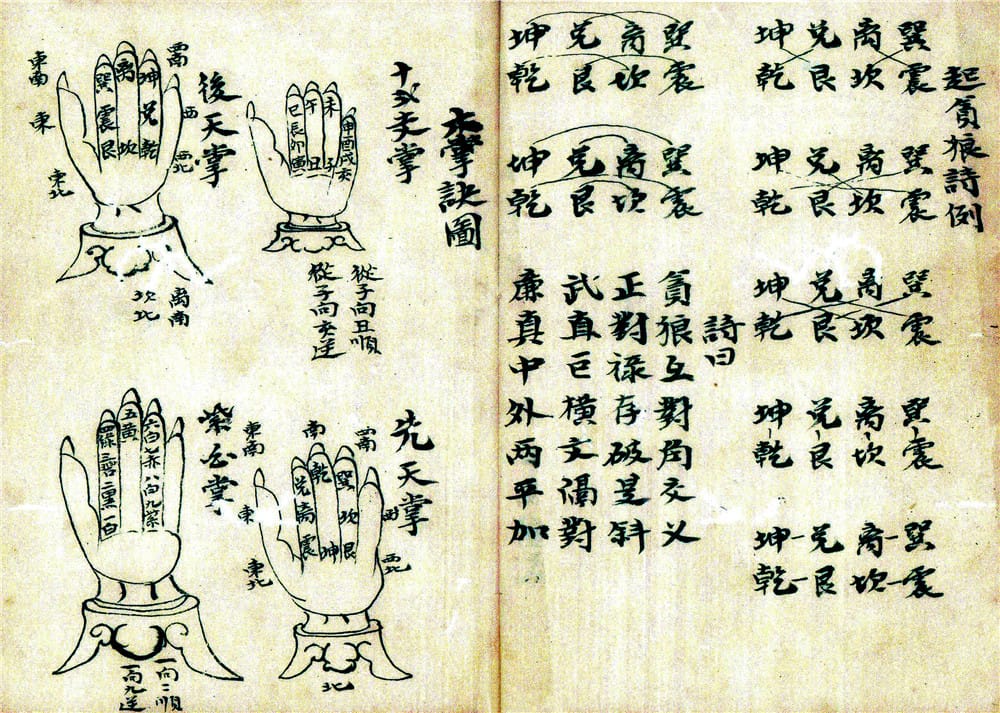 起貪狼詩例
坤兌離巽
乾艮坎震
坤兌離巽
乾艮坎震
坤兌離巽
乾艮坎震
坤兌離巽
乾艮坎震
坤兌離巽
乾艮坎震
坤兌离巽
乾艮坎震
坤兌離巽
乾艮坎震
詩曰
貪狼互對角交义
正對祿存破是斜
武直巨橫文偶對
廉真中外兩平加
掌訣圖
十弍支掌
申酉戌亥
未子
午丑
巳辰卯寅
從子向丑順
從子向亥逆
後天掌
西南
西
西北
坤兌乾
離坎
巽震艮
東南
東
東北
离南
坎北
先天掌
西南
西
西北
巽坎艮
南
乾坤
兌離震
東南
東
東北
北
紫白掌
六白七赤八白九紫
五黃
四綠三碧二黑一白
一向二順
一向九逆